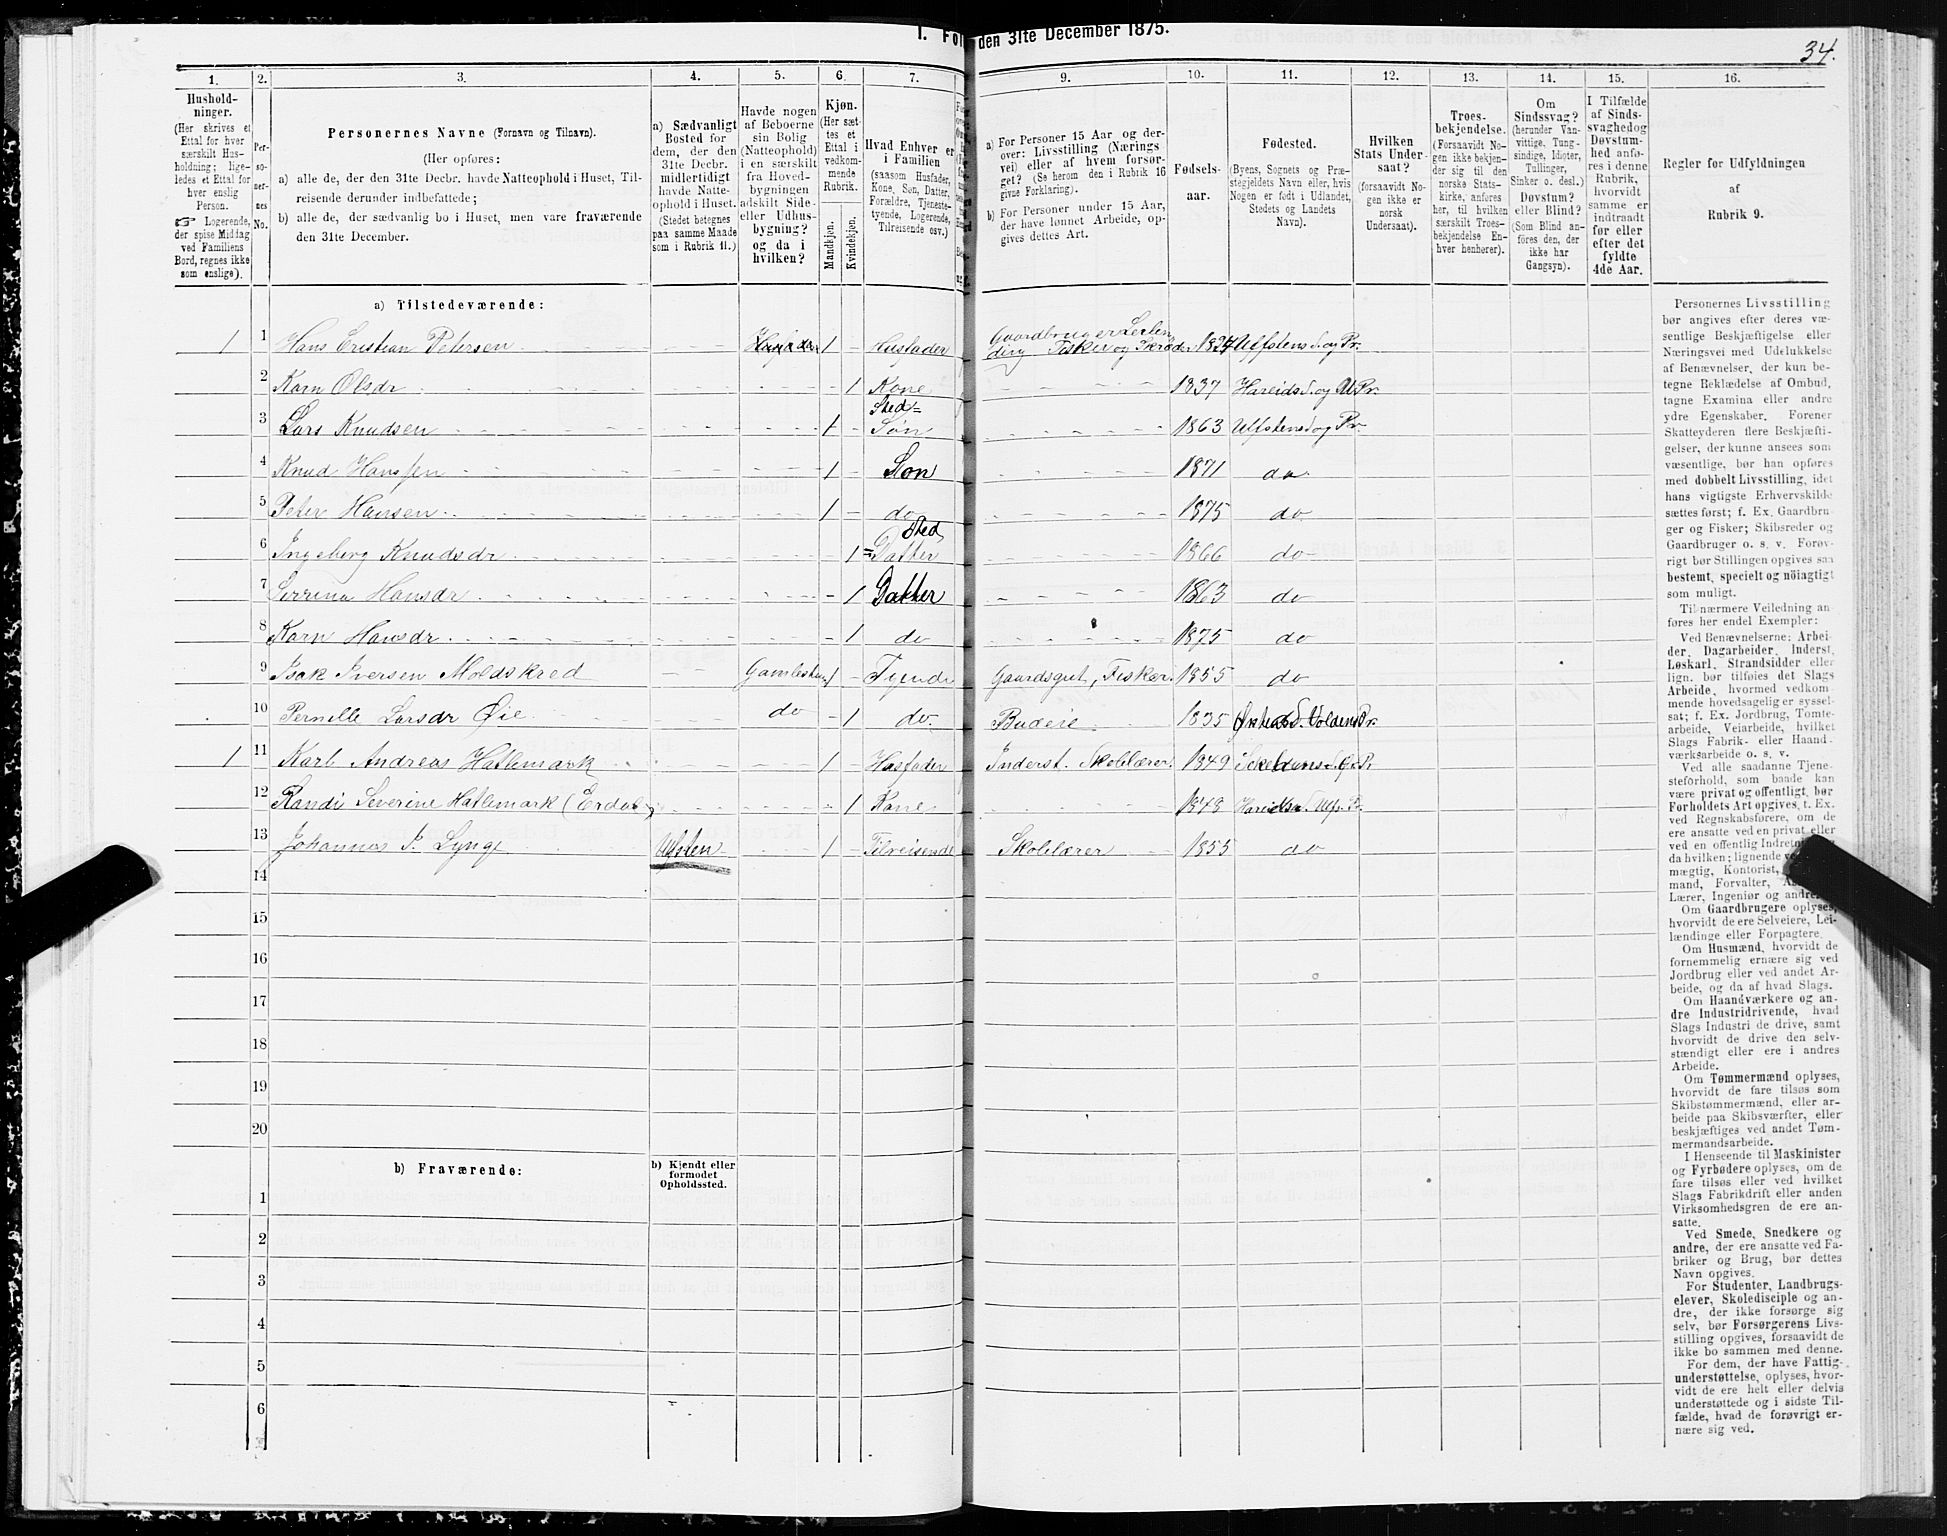 I. Fol den 31te December 1875.
34.
1. 2. 3. 4. 5. 6. 7. 9. 10. 11. 12. 13. 14. 15. 16.
Hushold-
ninger.
(Her skrives et
Ettal for hver
særskilt Hus-
holdning; lige-
ledes et Ettal for
hver enslig
Person.
☞ Logerende,
der spise Middag
ved Familiens
Bord, regnes ikke
som enslige).
Per-
so-
ner-
nes
No.
Personernes Navne (Fornavn og Tilnavn).
(Her opføres:
a) alle de, der den 31te Decbr. havde Natteophold i Huset, Til-
reisende derunder indbefattede;
b) alle de, der sædvanlig bo i Huset, men vare fraværende
den 31te December.
a) Sædvanligt
Bosted for
dem, der den
31te Decbr.
midlertidigt
havde Natte-
ophold i Huset.
(Stedet betegnes
paa samme Maade
som i Rubrik 11.)
Havde nogen
af Beboerne
sin Bolig
(Natteophold)
i en særskilt
fra Hoved-
bygningen
adskilt Side-
eller Udhus-
bygning?
og da i
hvilken?
Kjøn.
(Her sæt-
tes et
Ettal i
vedkom-
mende
Rubrik.
Mandkjøn.
Kvindekjøn.
Hvad Enhver er
i Familien
(saasom Husfader,
Kone, Søn, Datter,
Forældre, Tjeneste-
tyende, Logerende,
Tilreisende osv.)
a) For Personer 15 Aar og der-
over: Livsstilling (Nærings
vei) eller af hvem forsør-
get? (Se herom den i Rubrik 16
givne Forklaring).
b) For Personer under 15 Aar,
der have lønnet Arbeide, op-
gives dettes Art.
Fødsels-
aar.
Fødested.
(Byens, Sognets og Præ-
stegjeldets Navn eller, hvis
Nogen er født i Udlandet,
Stedets og Landets
Navn).
Hvilken
Stats Under-
saat?
(forsaavidt No-
gen ikke er
norsk
Undersaat).
Troes-
bekjendelse.
(Forsaavidt No-
gen ikke bekjen-
der sig til den
norske Stats-
kirke, anføres
her, til hvilken
særskilt Troes-
bekjendelse En-
hver henhører).
Om
Sindssvag?
(herunder Van-
vittige, Tung-
sindige, Idioter,
Tullinger,
Sinker o. desl.)
Døvstum?
eller Blind?
(Som Blind an-
føres den, der
ikke har
Gangsyn).
I Tilfælde
af Sinds-
svaghedog
Døvstum-
hed anfø-
res i denne
Rubrik,
hvorvidt
samme er
indtraadt
før eller
efter det
fyldte
4de Aar.
Regler for Udfyldningen
af
Rubrik 9.
a) Tilstedeværende:
1 1 Hans Cristian Petersen 1 – Husfader Gaardbruger Leilen
ding Fisker og Skræder 1824 Ulfstens S. og Pr.
2 Karn Olsdr 1 Kone 1837 Hareids S. og U Pr.
Sted=
3 Lars Knudsen 1 – Søn 1863 Ulfstens S og Pr.
4 Knud Hanssen 1 – Søn 1871 do
5 Peter Hansen 1 – do 1875 do
Sted
6 Ingeberg Knudsdr 1 =Datter 1866 do
7 Serrina Hansdr 1 Datter 1863 do
8 Karn Hansdr 1 do 1875 do
9 Isak Iversen Moldskred Gamlestuen 1 – Tyende Gaardsgut, Fisker 1855 do
10 Pernille Larsdr Øie do 1 do. Budeie 1835 Voldens Pr.
1 11 Karl Andreas Hatlemark 1 Husfader Inderst. Skolelærer 1849
12 Randi Severine Hatlemark (Erdal) 1 Kone 1848 Hareids S. Ulfs. Pr.
13 Johannes J. Lynge Ulfsten 1 – Tilreisende Skolelærer 1855 do
14
15
16
17
18
19
20
b) Fraværende:
b) Kjendt eller
formodet
Opholdssted.
1
2
3
4
5
6
Personernes Livsstilling
bør angives efter deres væ-
sentlige Beskjæftigelse eller
Næringsvei med Udelukkelse
af Benævnelser, der kun be-
tegne Beklædelse af Ombud,
tagne Examina eller andre
ydre Egenskaber. Forener
Skatteyderen flere Beskjæfti-
gelser, der kunne ansees som
væsentlige, bør han opføres
med dobbelt Livsstilling, idet
hans vigtigste Erhvervskilde
sættes først; f. Ex. Gaardbru-
ger og Fisker; Skibsreder og
Gaardbruger o. s. v. Forøv-
rigt bør Stillingen opgives saa
bestemt, specielt og nöiagtigt
som muligt.
Til nærmere Veiledning an-
føres her endel Exempler:
Ved Benævnelserne: Arbei-
der, Dagarbeider, Inderst,
Løskarl, Strandsidder eller
lign. bør tilføies det Slags
Arbeide, hvormed vedkom-
mende hovedsagelig er syssel-
sat; f. Ex. Jordbrug, Tomte-
arbeide, Veiarbeide, hvilket
Slags Fabrik- eller Haand-
værksarbeide o. s. v.
Ved alle saadanne Tjene-
steforhold, som baade kan
være privat og offentligt, bør
Forholdets Art opgives, t. Ex.
ved Regnskabsførere, om de
ere ansatte ved en privat eller
ved en offentlig Indretning og
da hvilken; lignende ved
mægtig, Kontorist,
mand, Forvalter,
Lærer, Ingeniør og andre.
Om Gaardbrugere oplyses,
hvorvidt de ere Selveiere, Lei-
lændinge eller Forpagtere.
Om Husmænd, hvorvidt de
fornemmelig ernære sig ved
Jordbrug eller ved andet Ar-
beide, og da af hvad Slags.
Om Haandværkere og an-
dre Industridrivende, hvad
Slags Industri de drive, samt
hvorvidt de drive den selv-
stændigt eller ere i andres
Arbeide.
Om Tømmermænd oplyses,
hvorvidt de fare tilsøs som
Skibstømmermænd, eller ar-
beide paa Skibsværfter, eller
beskjæftiges ved andet Tøm-
mermandsarbeide.
I Henseende til Maskinister
og Fyrbødere oplyses, om de
fare tilsøs eller ved hvilket
Slags Fabrikdrift eller anden
Virksomhedsgren de ere an-
satte.
Ved Smede, Snedkere og
andre, der ere ansatte ved Fa-
briker og Brug, bør dettes
Navn opgives.
For Studenter, Landbrugs-
elever, Skoledisciple og an-
dre, der ikke forsørge sig
selv, bør Forsørgerens Livs-
stilling opgives, forsaavidt de
ikke bo sammen med denne.
For dem, der have Fattig-
understøttelse, oplyses, hvor-
vidt de ere helt eller delvis
understøttede og i sidste Til-
fælde, hvad de forøvrigt er-
nære sig ved.